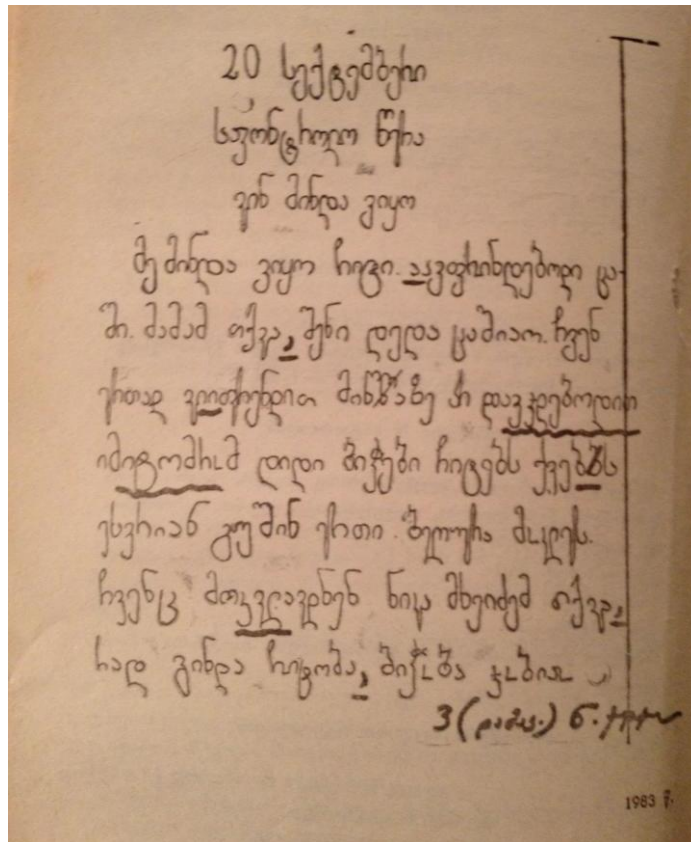 20 სექტემბერი
საკონტროლო წერა
ვინ მინდა ვიყო
მე მინდა ვიყო ჩიტი. ავკფრინდებოდი ცა-
ში. მამამ თქვა, შენი დედა ცაშიაო. ჩვენ
ერთად ვიიფრენდით მიწაზე კი დავჯდებოდით
იმიტომრამ დიდი ბიჭები ჩიტებს ქვებს
ესვრიან გუშინ ერთი ბელურა მაკლეს.
ჩვენც მოკვლავდნენ ნიკა მხეიძემ თქვა,
რად გინდა ჩიტობა, ბიჭობა ჯობიაო
3 (დამაკ.)
1983 წ.